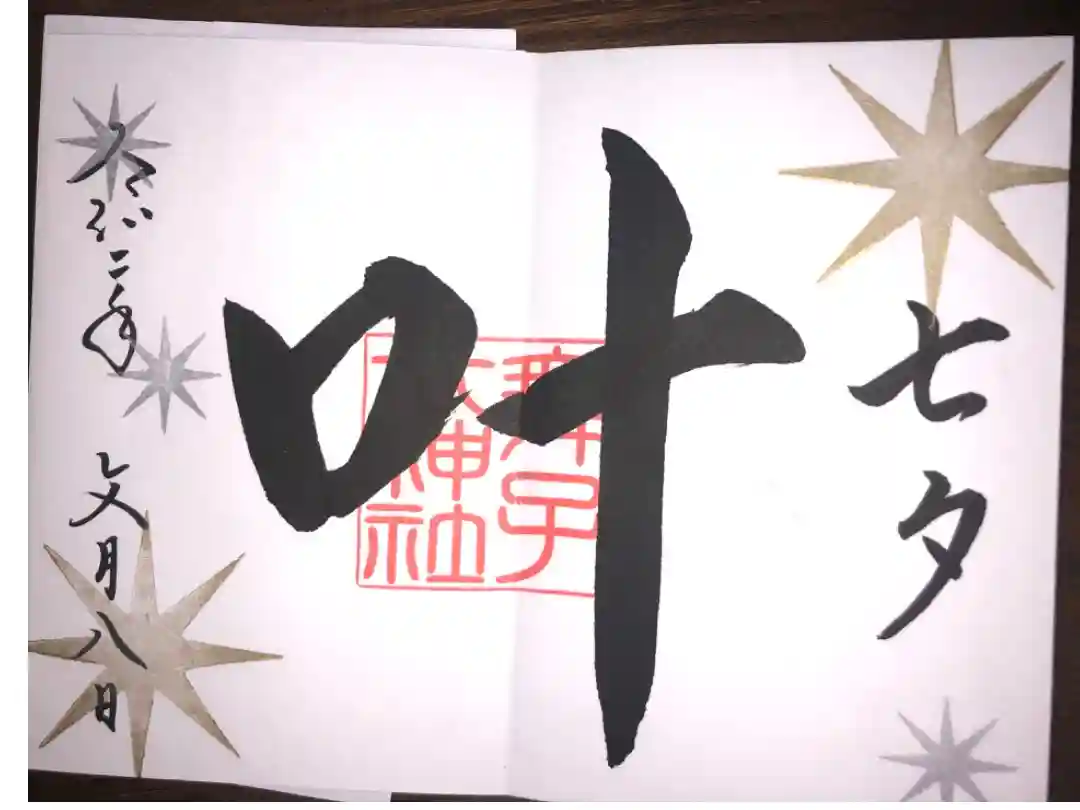 七夕
叶
舞子
六神社
令和二年
文月八日